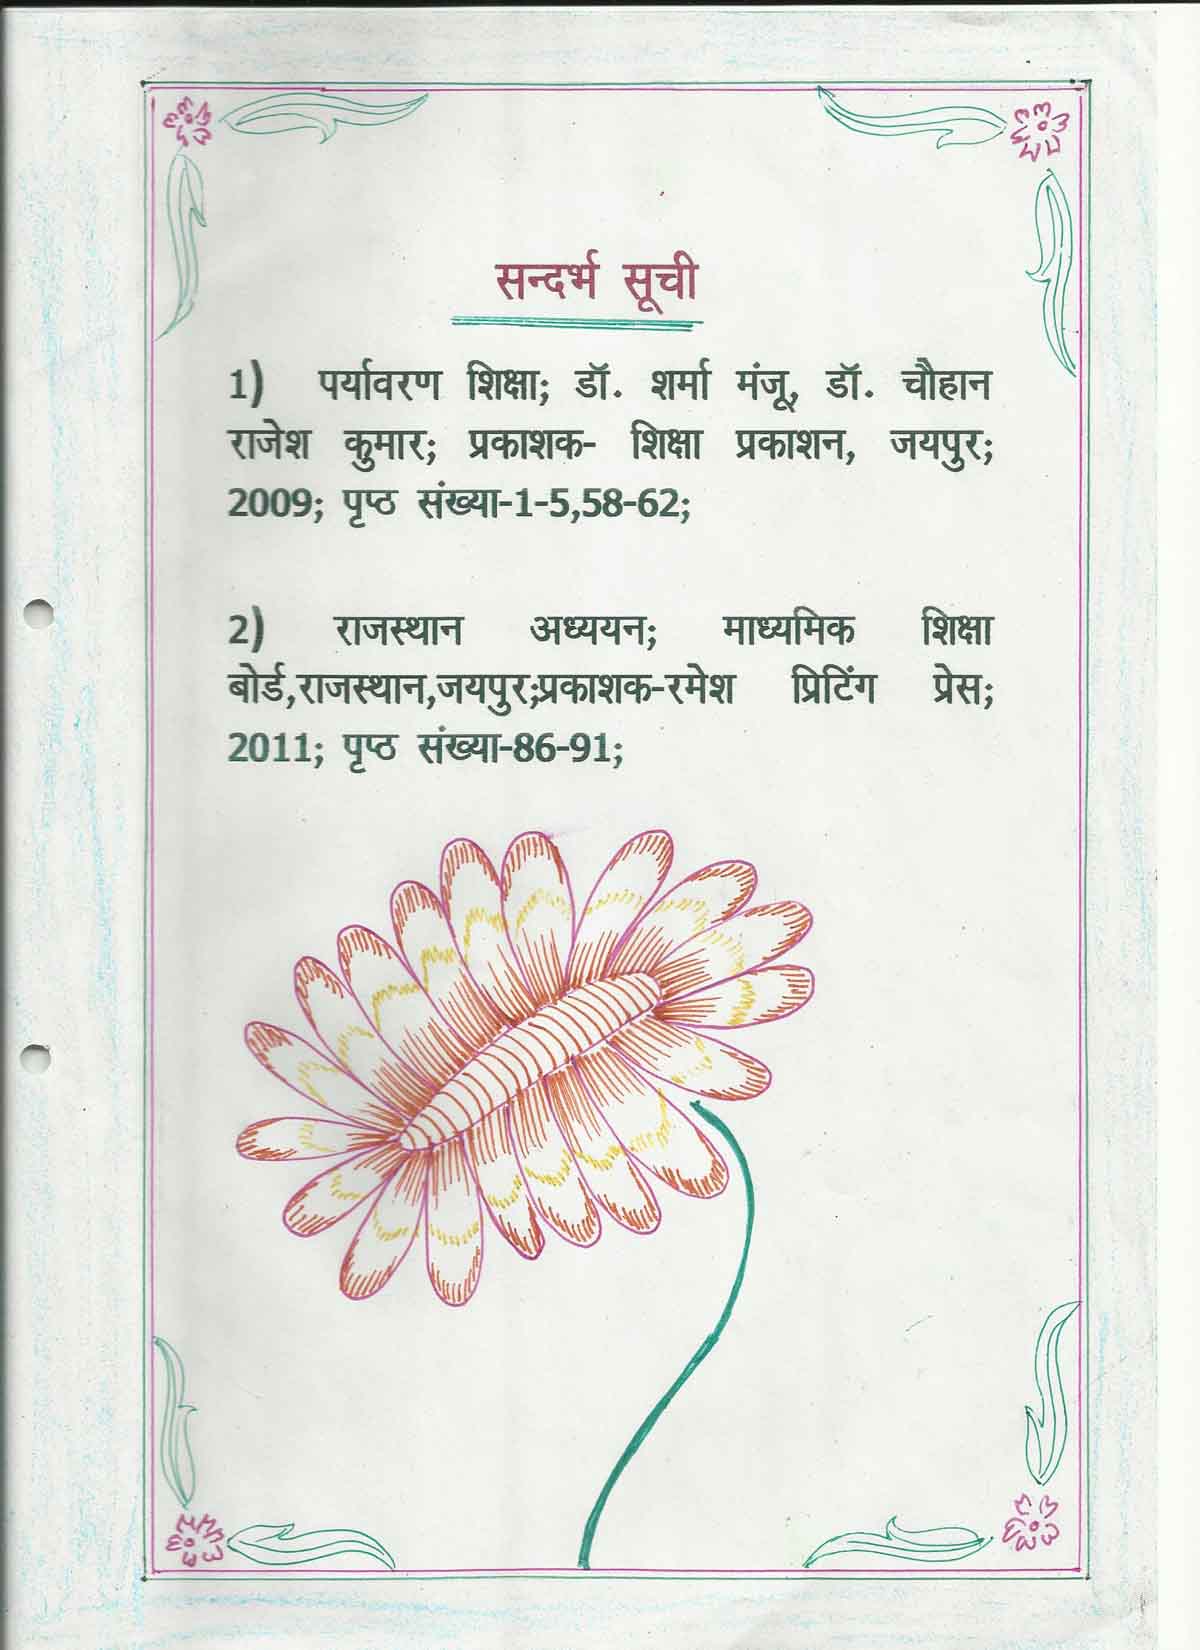 सन्दर्भ सूची
1) पर्यावरण शिक्षा; डॉ. शर्मा मंजू, डॉ. चौहान
राजेश कुमार; प्रकाशक- शिक्षा प्रकाशन, जयपुर;
2009; पृष्ठ संख्या-1-5,58-62;
2) राजस्थान अध्ययन; माध्यमिक शिक्षा
बोर्ड,राजस्थान,जयपुर;प्रकाशक-रमेश प्रिटिंग प्रेस;
2011; पृष्ठ संख्या-86-91;